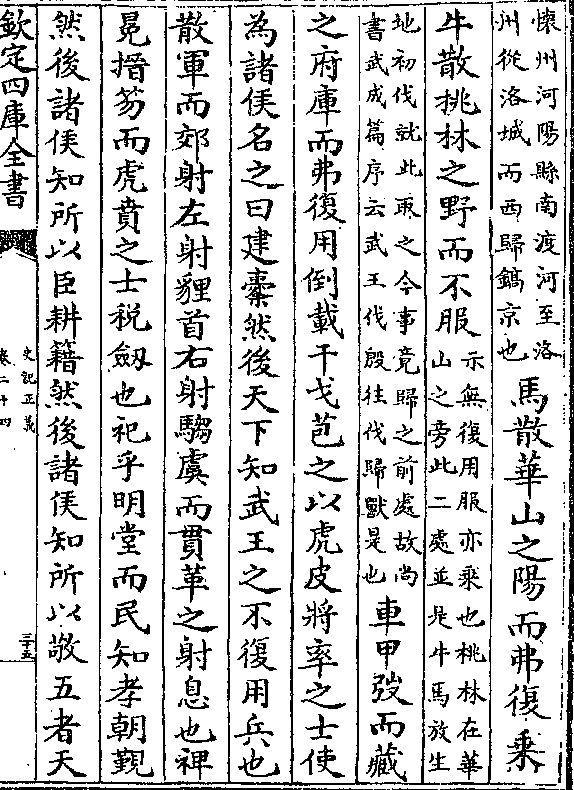 懷州河陽縣南渡河至洛
州從洛城而西歸鎬京也
馬散華山之陽而弗復乘
牛散桃林之野而不服
示無復用服亦乘也桃林在華
山之旁此二處並是牛馬放生
地初伐就此取之今事竟歸之前處故尚
書武成篇序云武王伐殷往伐歸獸是也
車甲弢而藏
之府庫而弗復用倒載干戈苞之以虎皮將率之士使
為諸侯名之曰建櫜然後天下知武王之不復用兵也
散軍而郊射左射貍首右射騶虞而貫革之射息也裨
冕搢笏而虎賁之士稅劔也祀乎明堂而民知孝朝覲
然後諸侯知所以臣耕籍然後諸侯知所以敬五者天
欽定四庫全書
史記正義
卷二十四
三十五